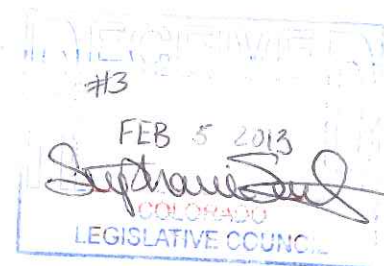 RECEIVED
#13
FEB 5 2013
COLORADO
LEGISLATIVE COUNCIL